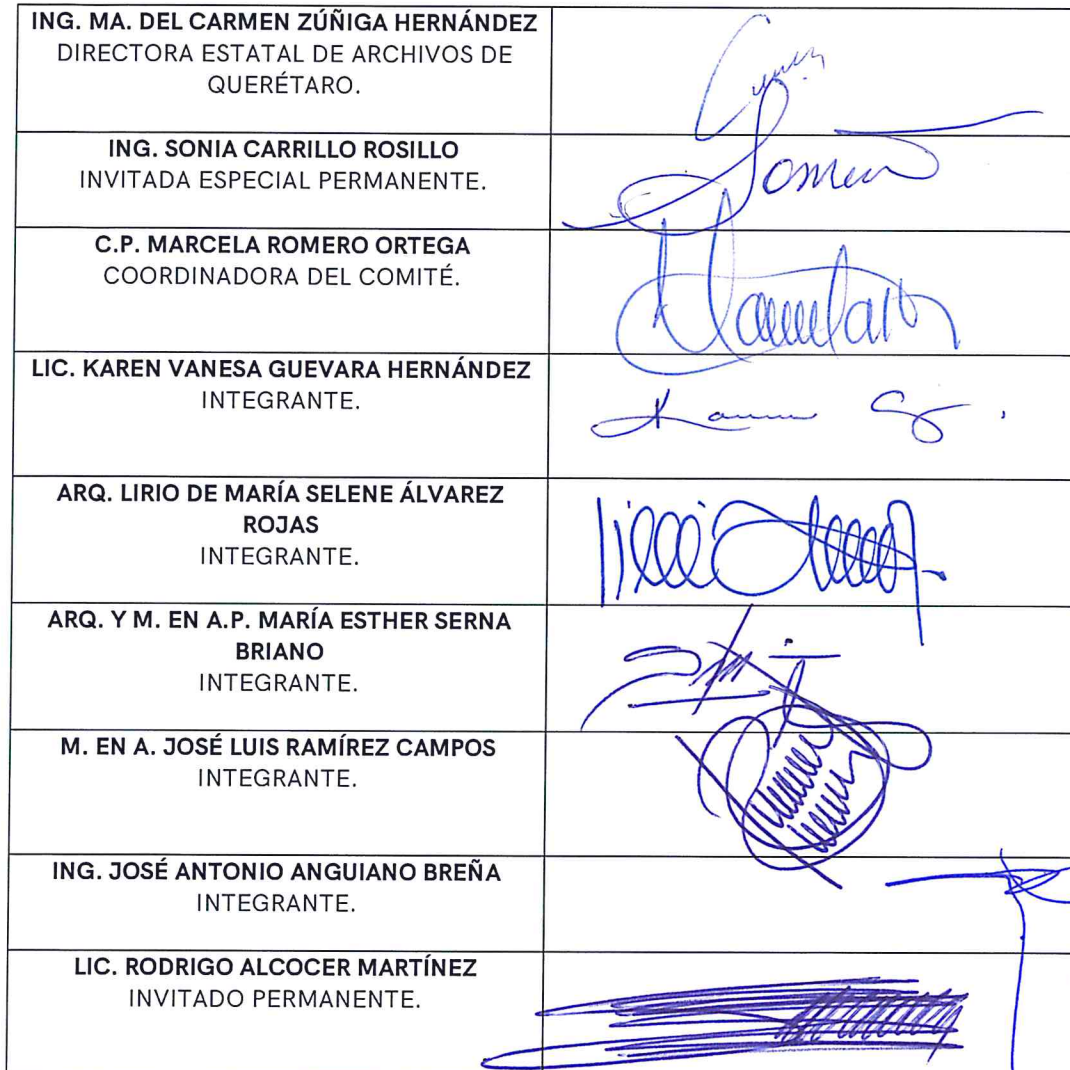 ING. MA. DEL CARMEN ZÚÑIGA HERNÁNDEZ
DIRECTORA ESTATAL DE ARCHIVOS DE
QUERÉTARO.
ING. SONIA CARRILLO ROSILLO
INVITADA ESPECIAL PERMANENTE.
C.P. MARCELA ROMERO ORTEGA
COORDINADORA DEL COMITÉ.
LIC. KAREN VANESA GUEVARA HERNÁNDEZ
INTEGRANTE.
ARQ. LIRIO DE MARÍA SELENE ÁLVAREZ
ROJAS
INTEGRANTE.
ARQ. Y M. EN A.P. MARÍA ESTHER SERNA
BRIANO
INTEGRANTE.
M. EN A. JOSÉ LUIS RAMÍREZ CAMPOS
INTEGRANTE.
ING. JOSÉ ANTONIO ANGUIANO BREÑA
INTEGRANTE.
LIC. RODRIGO ALCOCER MARTÍNEZ
INVITADO PERMANENTE.